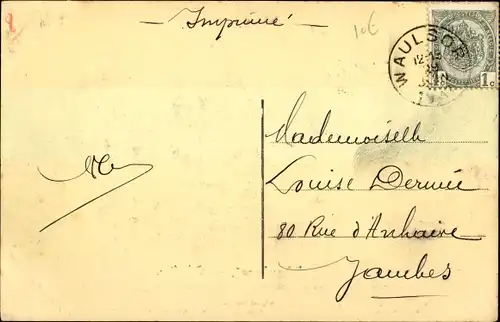 — Imprimé —
10€
WAULSORT
12-13
1c
Mademoiselle
Louise Dermié
80 Rue d'Anhaive
Jambes